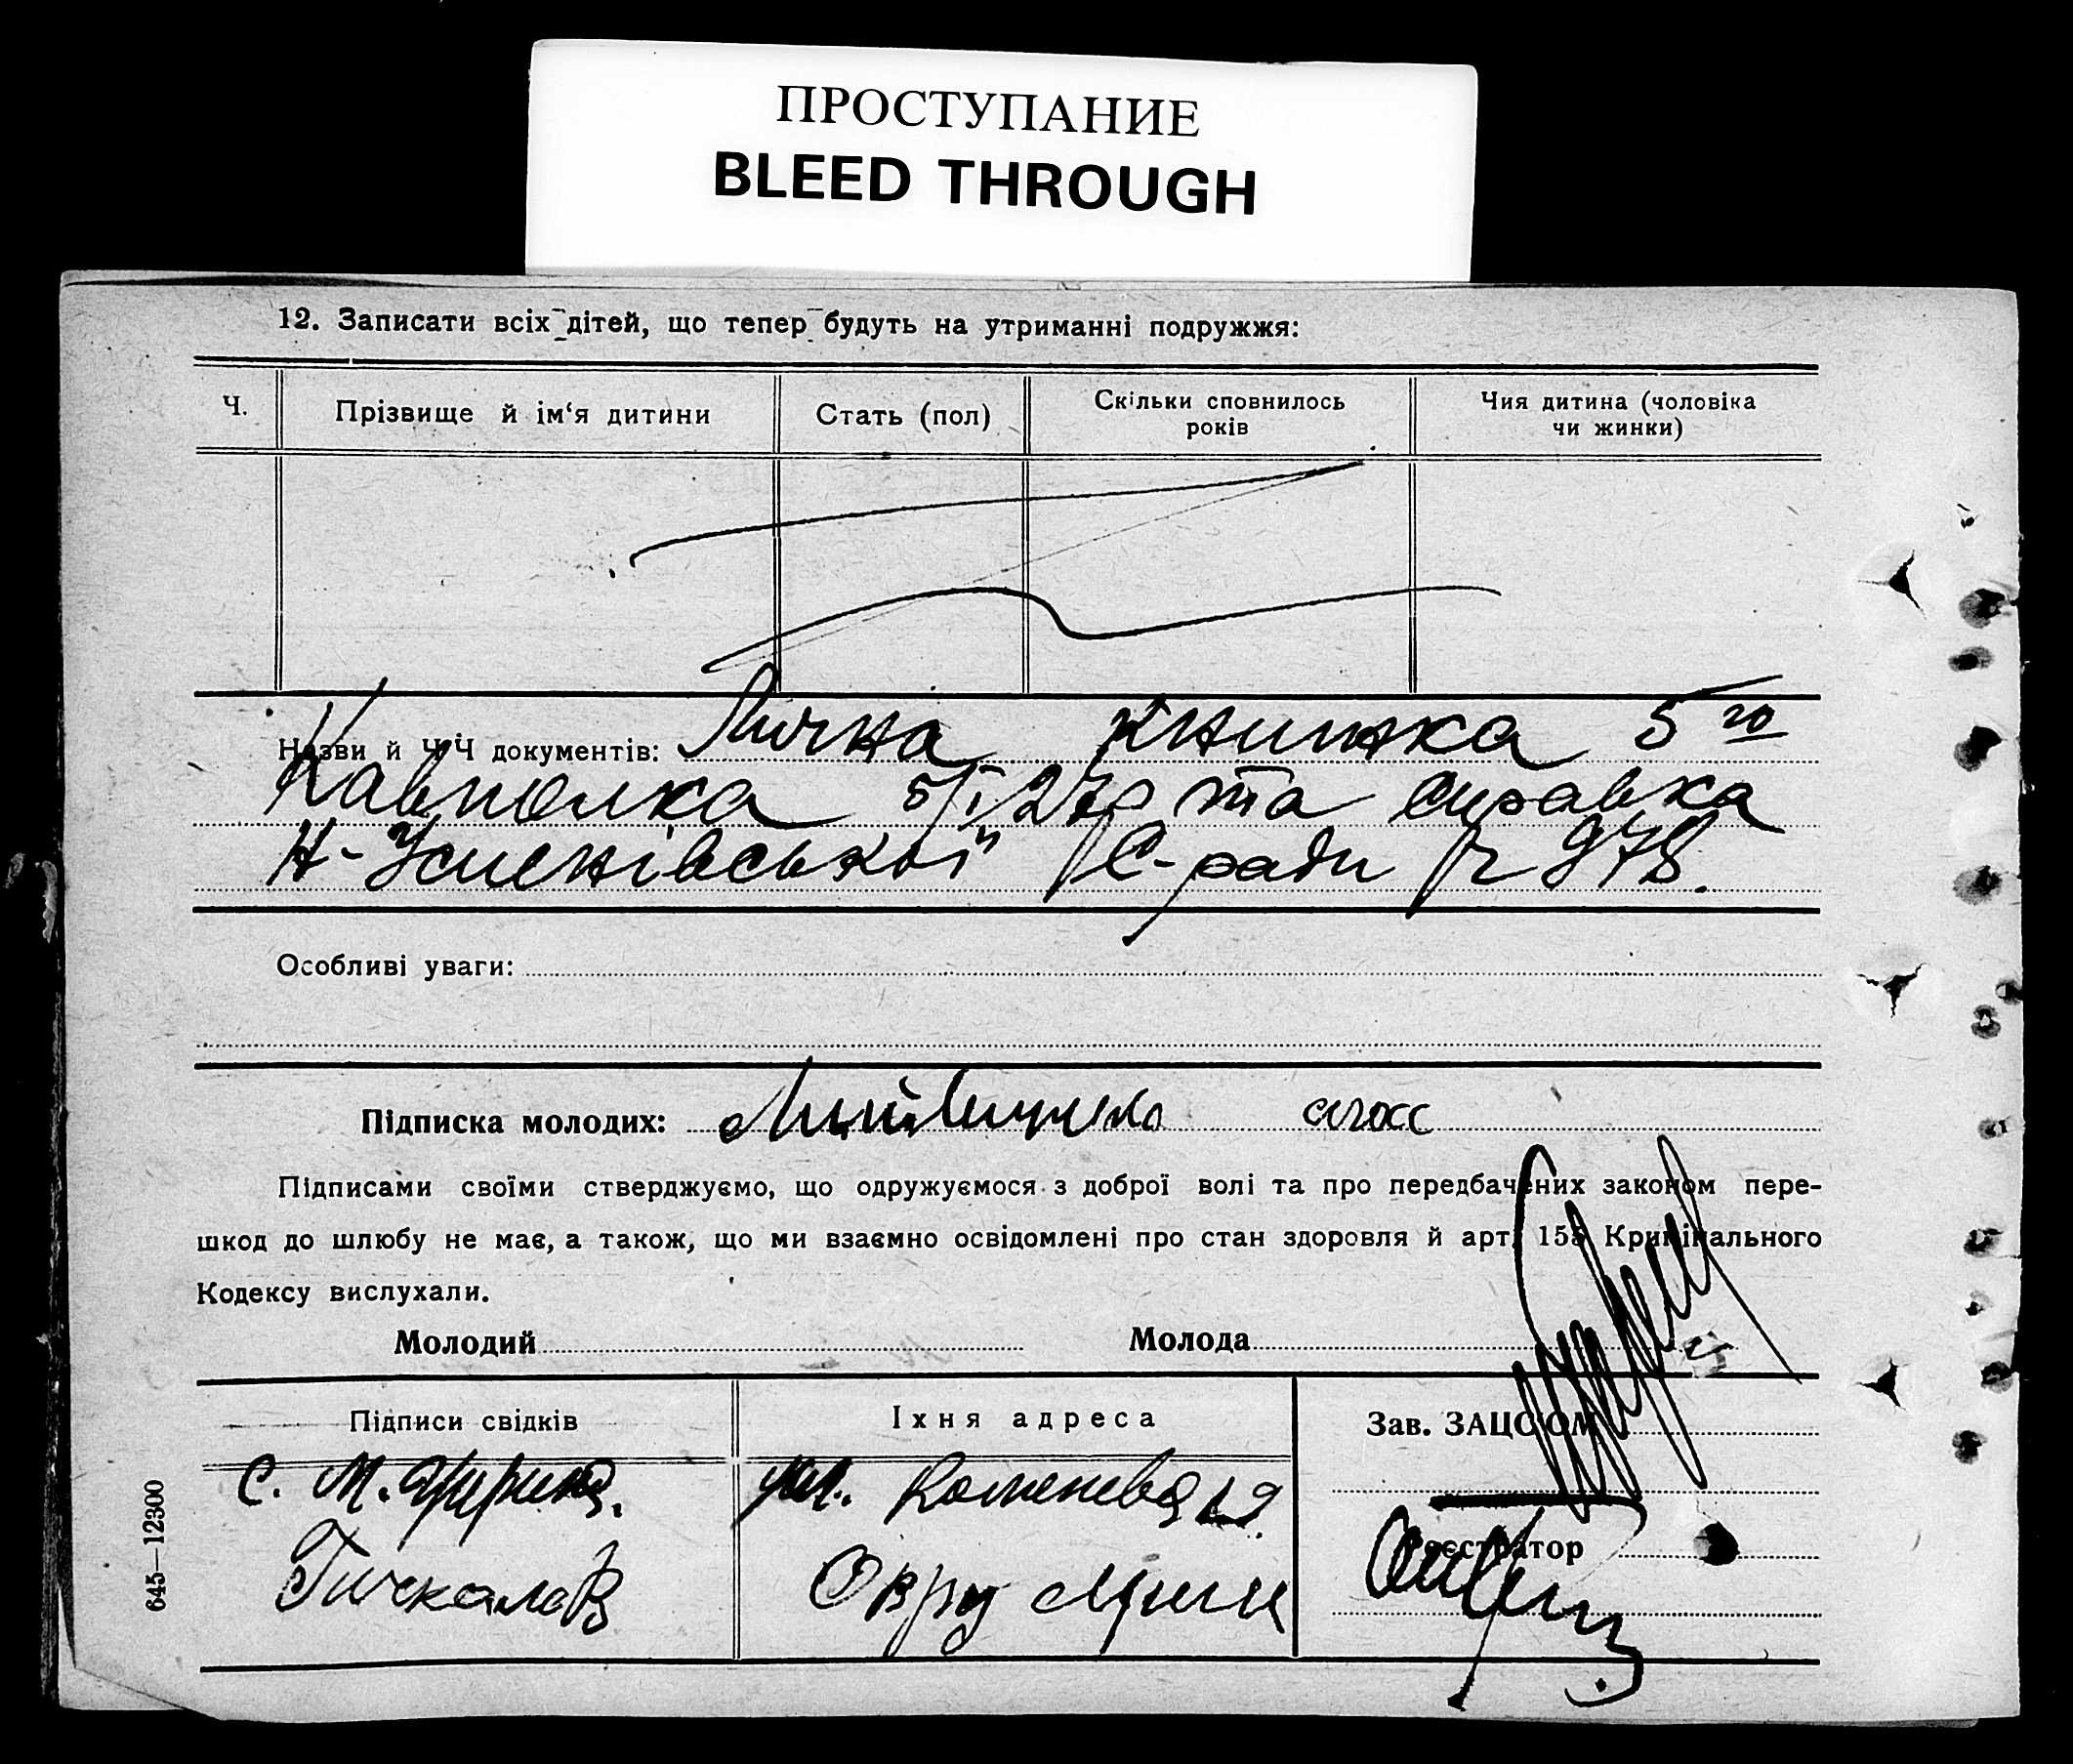 ПРОСТУПАНИЕ
BLEED THROUGH
12. Записати всіх дітей, що тепер будуть на утриманні подружжя:
Ч.
Прізвище й ім‘я дитини
Стать (пол)
Скільки сповнилось
років
Чия дитина (чоловіка
чи жинки)
Назви й Ч Ч документів: Лична Книжка 5го
Кавполка 5/I 27р та справка
Н-Успенівської С-ради 978.
Особливі уваги:
Підписка молодих:
Підписами своїми стверджуємо, що одружуємося з доброї волі та про передбачених законом пере-
шкод до шлюбу не має, а також, що ми взаємно освідомлені про стан здоровля й арт. 155 Кримінального
Кодексу вислухали.
Молодий
Молода
Підписи свідків
Їхня адреса
Зав. ЗАЦС'ОМ
С. М.
ул. Каменева 19.
Реєстратор
645—12300